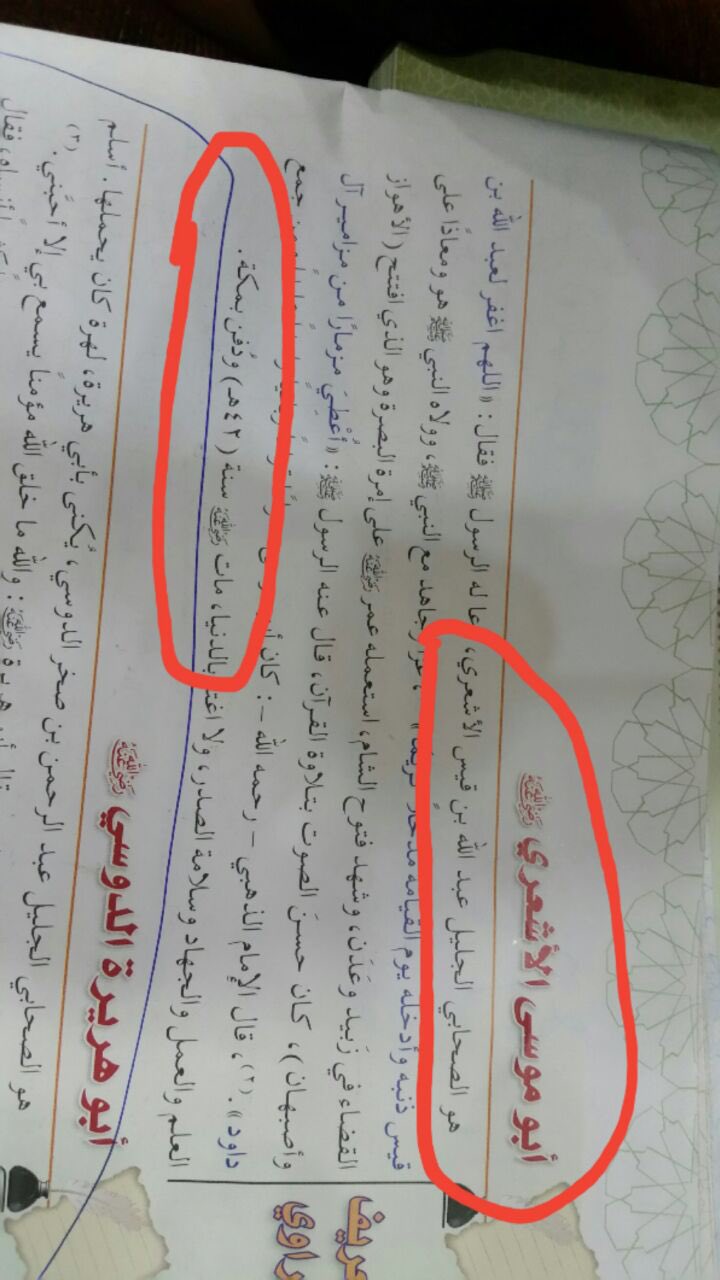 أبو موسى الأشعري رضي الله عنه
هو الصحابي الجليل عبد الله بن قيس الأشعري، عا له الرسول ﷺ فقال: «اللهم اغفر لعبد الله بن
قيس ذنبه وأدخله يوم القيامة مدخلًا كريمًا» وجاهد مع النبي ﷺ، وولاه النبي ﷺ هو ومعاذًا على
القضاء في زبيد وعَدَن، وشهد فتوح الشام، استعمله عمر رضي الله عنه على إمرة البصرة وهو الذي افتتح (الأهواز
وأصبهان)، كان حسنَ الصوت بتلاوة القرآن، قال عنه الرسول ﷺ: «أُعْطِيَ مزمارًا من مزامير آل
داود».(٢)، قال الإمام الذهبي – رحمه الله –: كان جمع
العلم والعمل والجهاد وسلامة الصدر، ولا اغتر بالدنيا، مات رضي الله عنه سنة (٤٢هـ) ودُفن بمكة.
أبو هريرة الدوسي رضي الله عنه
هو الصحابي الجليل عبد الرحمن بن صخر الدوسي، يُكنى بأبي هريرة، لهرة كان يحملها. أسلم
أبو هريرة رضي الله عنه: والله ما خلق الله مؤمنًا يسمع بي إلا أحبَّني.(٣)